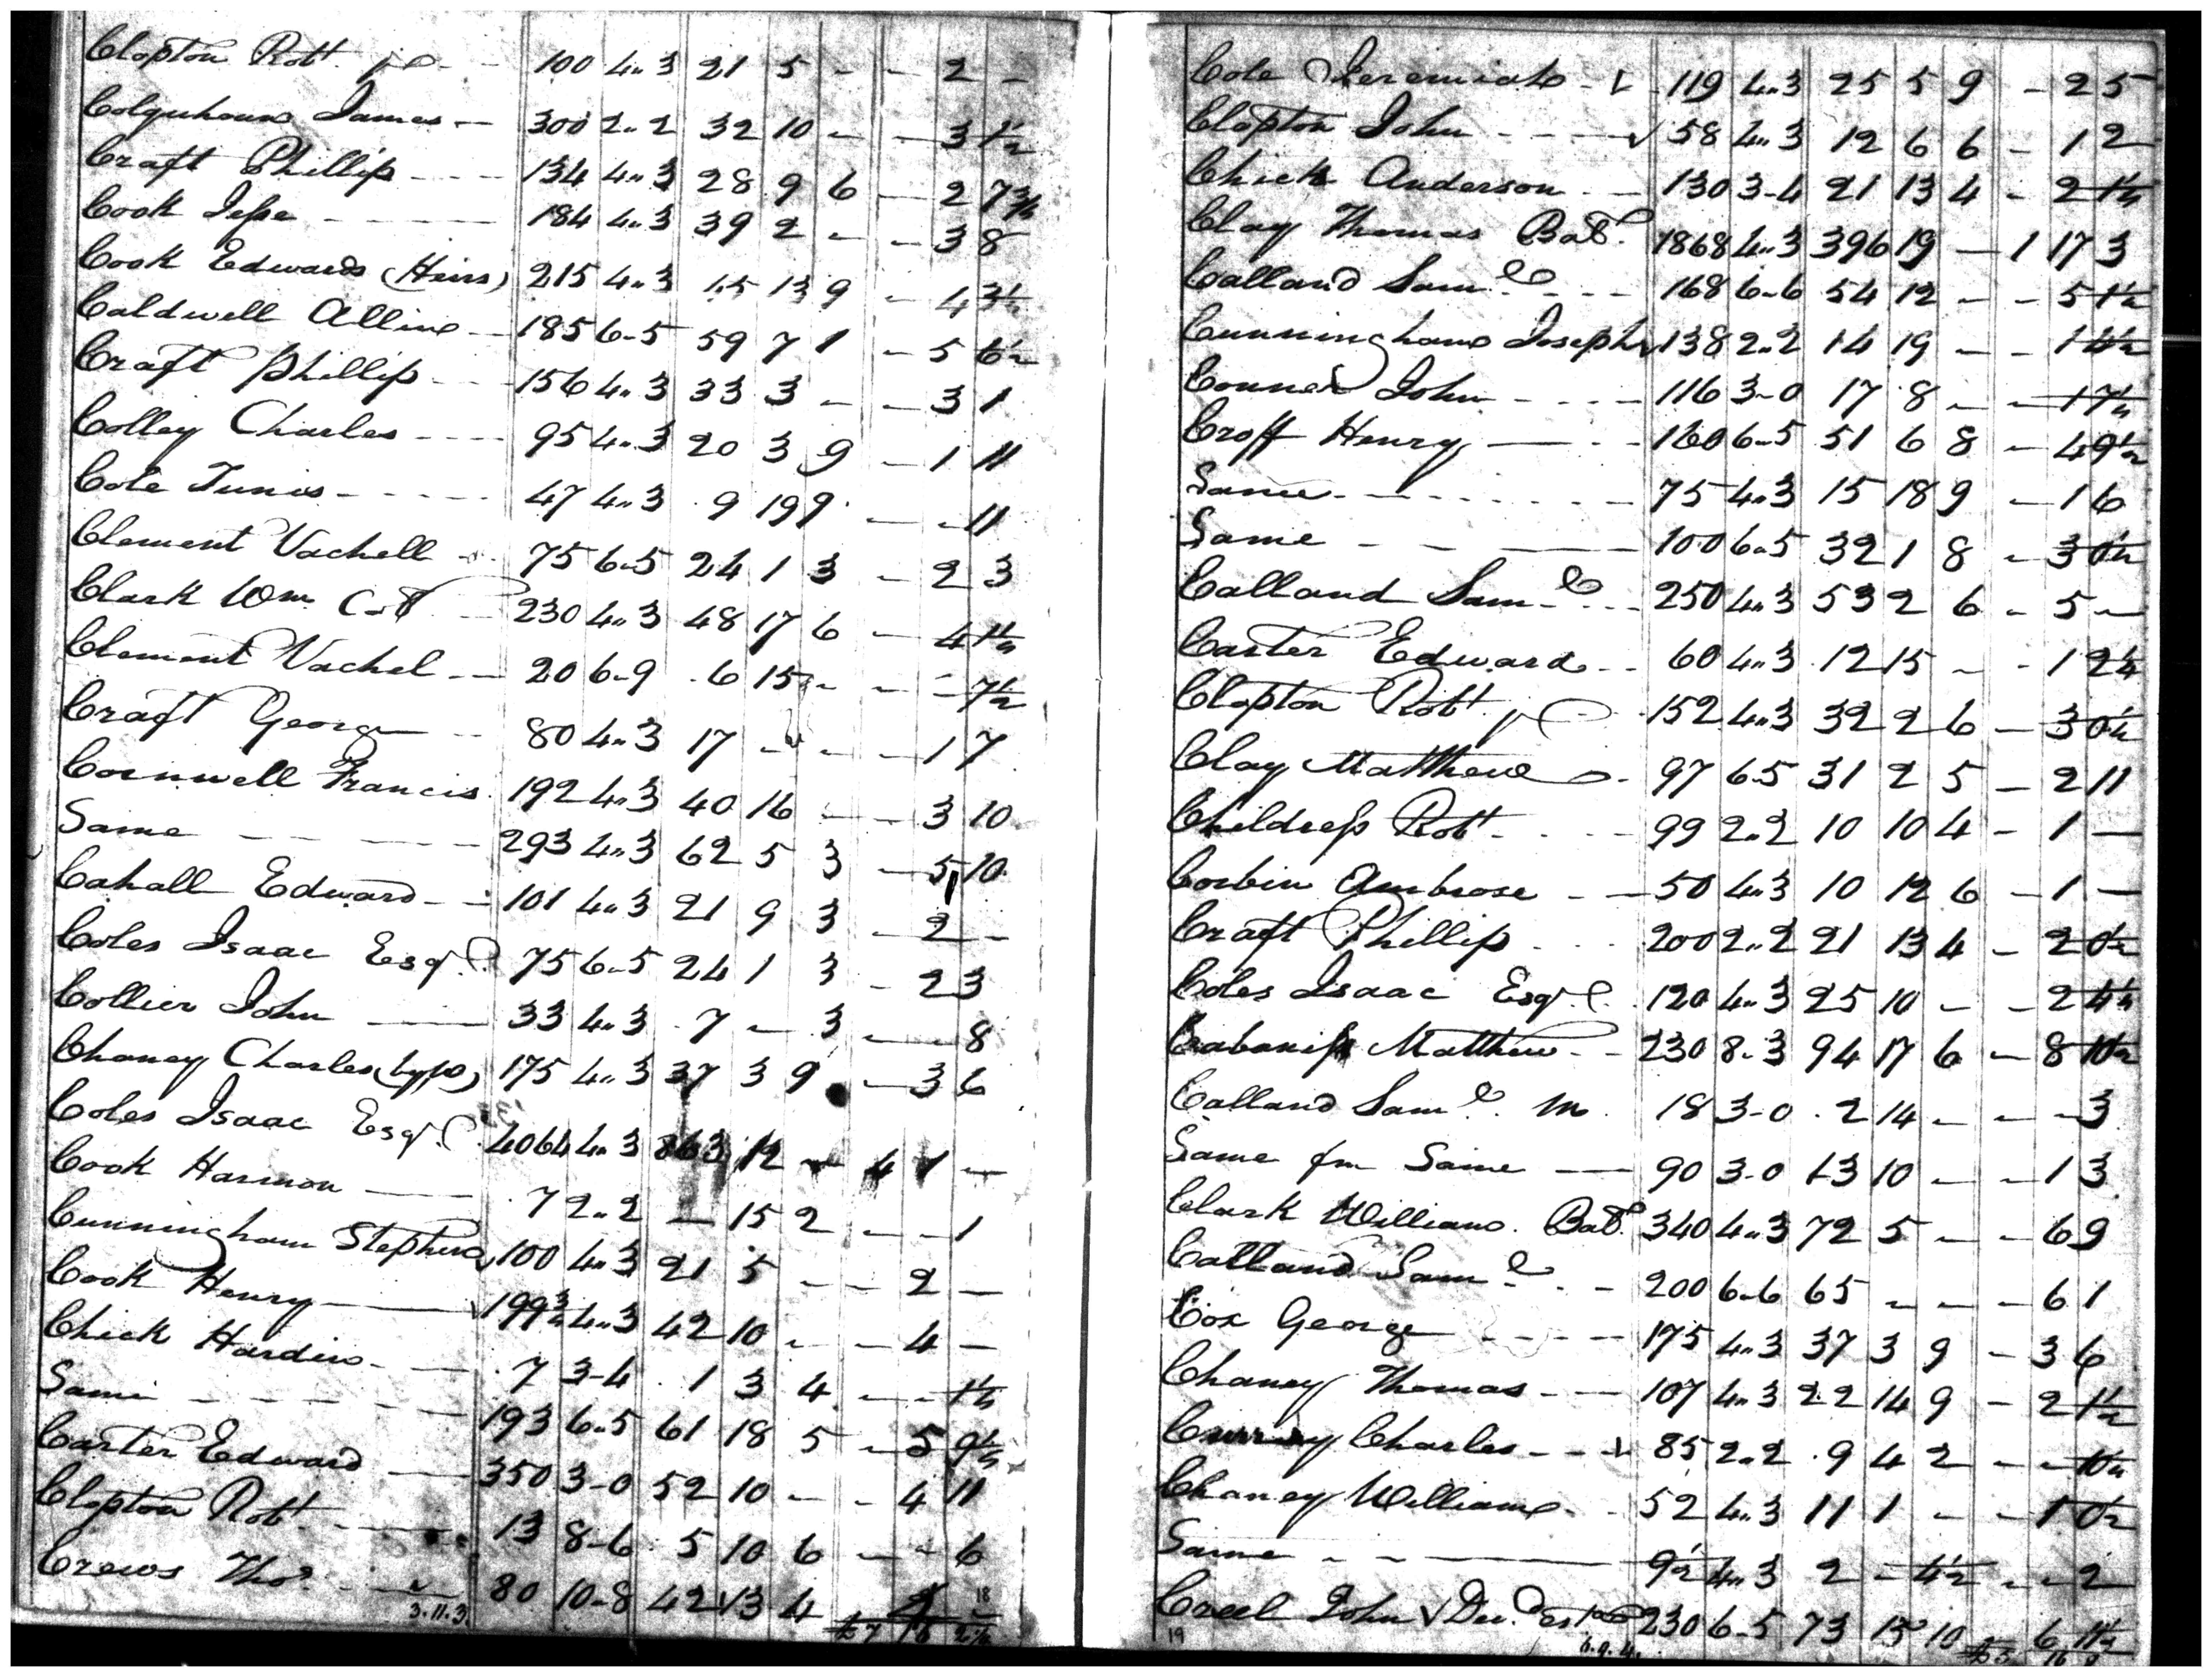 Clopton Robt. 100 4..3 21 5 - - 2 -
Colquhoun James - 300 2..2 32 10 - - 3 1½
Craft Phillip - - - 134 4..3 28 9 6 - 2 7¾
Cook Jesse - - - 184 4..3 39 2 - - 3 8
Cook Edward (Heirs) 215 4..3 45 13 9 - 4 3½
Caldwell Allin - 185 6-5 59 7 1 - 5 6½
Craft Phillip - - 156 4..3 33 3 - - 3 1
Colley Charles - - - 95 4..3 20 3 9 - 1 11
Cole Tunis - - - - 47 4..3 9 19 9 - - 11
Clement Vachell - 75 6-5 24 1 3 - 2 3
Clark Wm. 230 4..3 48 17 6 - 4 1½
Clement Vachel - - 20 6-9 6 15 - - - 7½
Craft George - 80 4..3 17 - - - 1 7
Cornwell Francis 192 4..3 40 16 - - 3 10
Same - - - - 293 4..3 62 5 3 - 5 10
Cahall Edward - - 101 4..3 21 9 3 - 2 -
Coles Isaac Esqr. 75 6-5 24 1 3 - 2 3
Collier John - 33 4..3 7 - 3 - - 8
Chaney Charles 175 4..3 37 3 9 - 3 6
Coles Isaac Esqr. 4064 4..3 863 12 - 4 1 -
Cook Harmon - 7 2..2 - 15 2 - - 1
Cunningham Stephen 100 4..3 21 5 - - 2 -
Cook Henry - 199¾ 4..3 42 10 - - 4 -
Chick Hardin - - 7 3-4 1 3 4 - - 1½
Same - - - - 193 6-5 61 18 5 - 5 9½
Carter Edward - 350 3-0 52 10 - - 4 11
Clopton Robt. - - 13 8-6 5 10 6 - - 6
Crews Thos. - - 80 10-8 42 13 4
3.11.3.
18
Cole Jeremiah - 119 4..3 25 5 9 - 2 5
Clopton John - - - 58 4..3 12 6 6 - 1 2
Chick Anderson - - 130 3-4 21 13 4 - 2 1½
Clay Thomas 1868 4..3 396 19 - 1 17 3
Calland Saml. - - - 168 6-6 54 12 - - 5 1½
Cunningham Joseph 138 2..2 14 19 - - 1 4½
Conner John - - - 116 3-0 17 8 - - 1 7½
Croff Henry - - 160 6-5 51 6 8 - 4 9½
Same - - - - - 75 4..3 15 18 9 - 1 6
Same - - - 100 6-5 32 1 8 - 3 0½
Calland Saml. - - 250 4..3 53 2 6 - 5 -
Carter Edward - - 60 4..3 12 15 - - 1 2½
Clopton Robt. 152 4..3 32 2 6 - 3 0½
Clay Matthew - 97 6-5 31 2 5 - 2 11
Childress Robt. - - - 99 2..2 10 10 4 - 1 -
Corbin Ambrose - - 50 4..3 10 12 6 - 1 -
Craft Phillip - - - 200 2..2 21 13 4 - 2 0½
Coles Isaac Esqr. 120 4..3 25 10 - - 2 4½
Cabaniss Matthew - - 230 8-3 94 17 6 - 8 10½
Calland Saml. 18 3-0 2 14 - - - 3
Same fm Same - 90 3-0 13 10 - - 1 3
Clark William 340 4..3 72 5 - - 6 9
Calland Saml. - - 200 6-6 65 - - - 6 1
Cox George - - - - 175 4..3 37 3 9 - 3 6
Chaney Thomas - - 107 4..3 22 14 9 - 2 1½
Charles - - 85 2..2 9 4 2 - - 10½
Chaney William - - 52 4..3 11 1 - - 1 0½
Same - - - 9½ 4..3 2 - 4½ - - 2
Creel John Decd. Est. 230 6-5 73 15 10 6 11½
19